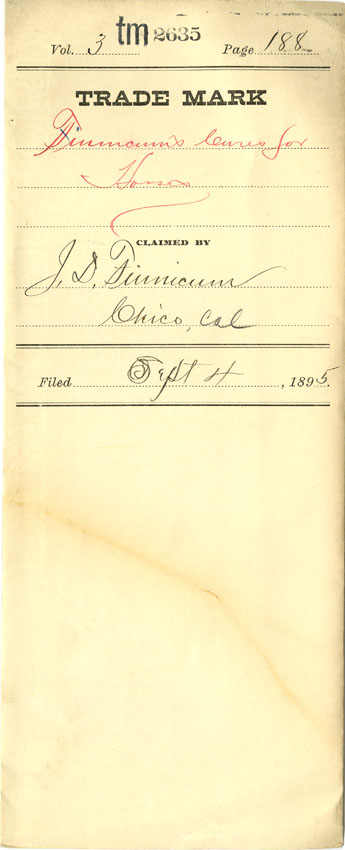 tm 2635
Vol. 3 Page 188
TRADE MARK
Finnicum's Cures for
Horses
CLAIMED BY
J. D. Finnicum
Chico, Cal
Filed Sept 4, 1895.